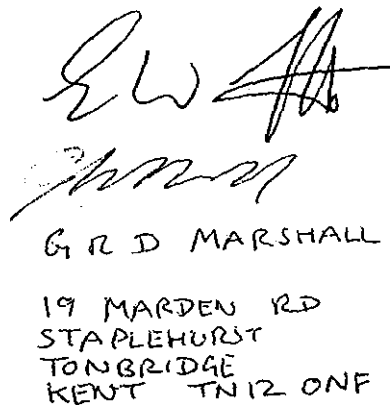 G R D MARSHALL
19 MARDEN RD
STAPLEHURST
TONBRIDGE
KENT TN12 0NF